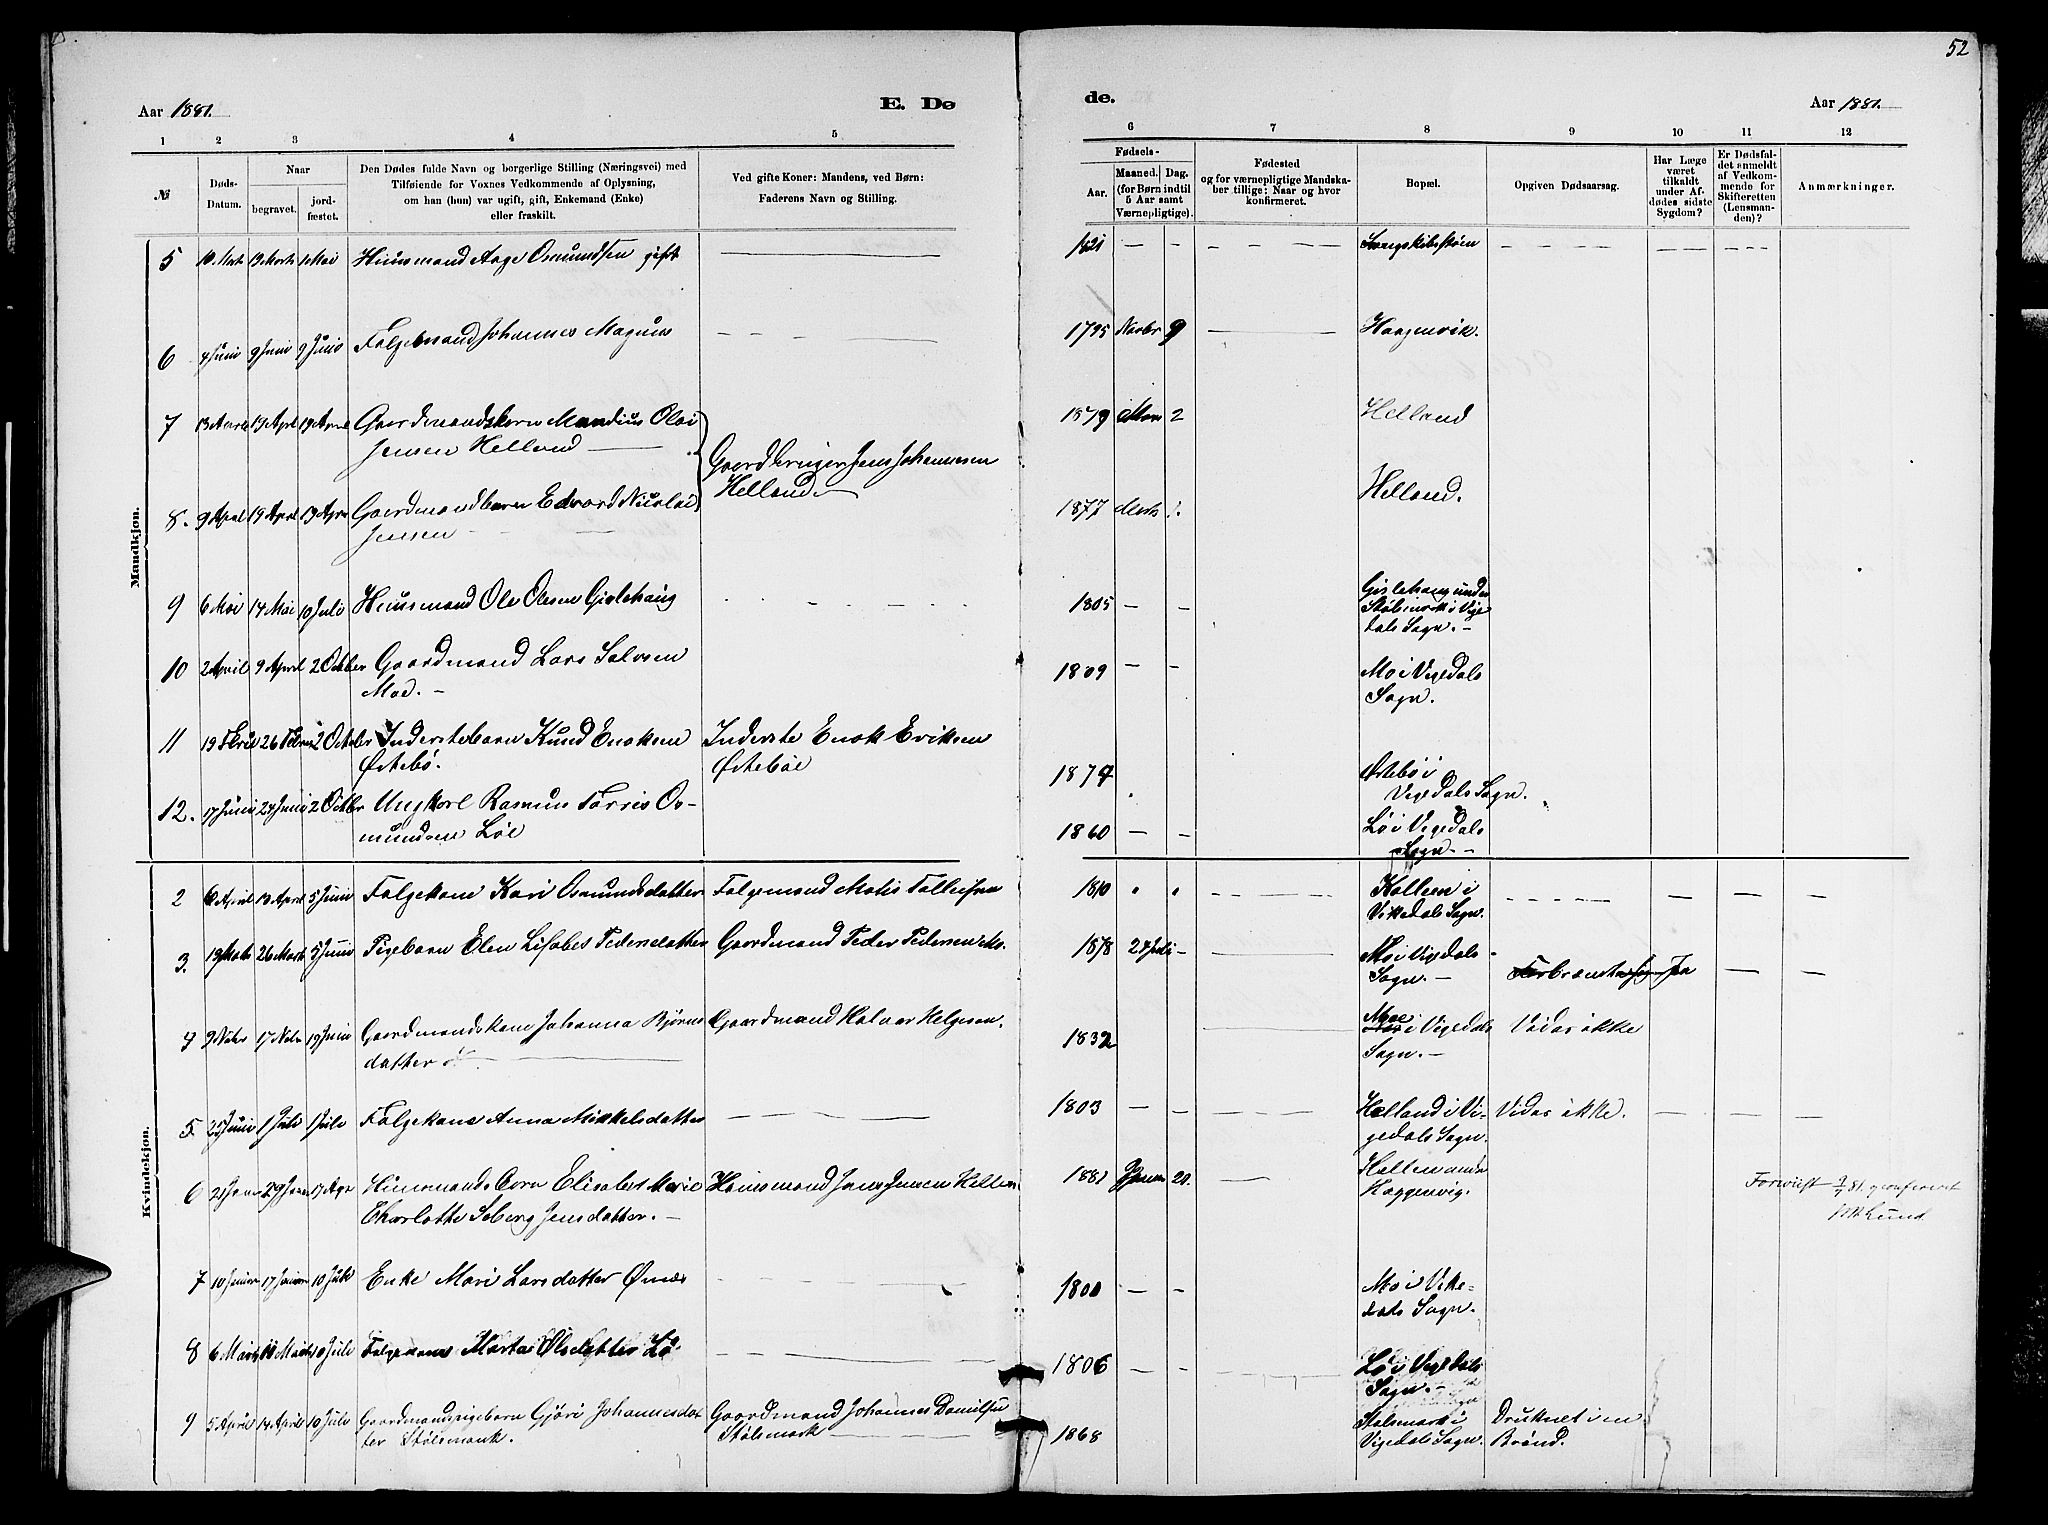 52
Aar 1881.
E. Dø
de.
Aar 1881.
1 2 3 4 5 6 7 8 9 10 11 12
№
Døds-
Datum.
Naar
begravet.
jord-
fæstet.
Den Dødes fulde Navn og borgerlige Stilling (Næringsvei) med
Tilføiende for Voxnes Vedkommende af Oplysning,
om han (hun) var ugift, gift, Enkemand (Enke)
eller fraskilt.
Ved gifte Koner: Mandens, ved Børn:
Faderens Navn og Stilling.
Fødsels-
Aar.
Maaned. Dag.
(for Børn indtil
5 Aar samt
Værnepligtige).
Fødested
og for værnepligtige Mandska-
ber tillige: Naar og hvor
konfirmeret.
Bopæl.
Opgiven Dødsaarsag.
Har Læge
været
tilkaldt
under Af-
dødes sidste
Sygdom?
Er Dødsfal-
det anmeldt
af Vedkom-
mende for
Skifteretten
(Lensman-
den)?
Anmærkninger.
Mandkjøn.
5 10 Mart 19 Marts 1 Mai Huusmand Aage Osmundsen gift — 1821 — — — — —
6 4 Juni 9 Juni 9 Juni Folgemand Johannes Magnus — — — 1795 Novbr 9 — Haagenvik.
7 13 April 19 Aprl 19 April Gaardmandsbarn Mandius Olai 1879 2 Helland
Jensen Helland — Gaardbruger Jens Johannesen
Helland —
8. 9 April 19 April 19 Apr Gaardmandbarn Edvard Nicolai 1877 Marts Helland.
Jensen —
9 6 Mai 14 Mai 10 Juli Huusmand Ole Olesen Gislehaug 1805 — — Gislehaug under
Stølsmark i Vige
dals Sogn. —
10 2 April 9 April 2 Octber Gaardmand Lars Salvesen 1809 — — Mo i Vigedals
Moe. — Sogn.
11 19 Febr 26 Febr 2 Octber Inderstebarn Knud Enoksen Inderste Enok Eriksen
Østebø. Østebøe 1874 Østebø i
Vigedals Sogn.
12. 17 Juni 24 Juni 2 Octbr Ungkarl Rasmus Tørris Os- 1860 — — Lø i Vigedals
mundsen Løe Sogn. —
Kvindekjøn.
2 6 April 13 April 5 Juni Folgekone Kari Osmundsdatter Folgemand Matis Tolleifsen 1810 Kalleen i
Vikedals Sogn. — — —
3. 19 Marts 26 Mart 5 Juni Pigebarn Elen Lisabet Pedersdatter Gaardmand Peder Pedersen Mo. 1878 24 Juli — — Mo i Vigedals
Sogn. — Forbrændt Ja — —
4 9 Nobr 17 Nobr 19 Juni Gaardmandskone Johanna Bjørns Gaardmand Halvar Helgesen. 1832 — Moe i Vigedals Vides ikke
datter — Sogn. —
5 25 Juni 1 Juli 1 Juli Folgekone Anna Mikkelsdatter — — — 1803 — — Helland i Vi- Vides ikke.
gedals Sogn.
6 21 Janr 29 Janr 17 Apr Huusmands barn Elisabet Marie Huusmand Jens Jensen 1881 Janua 20. —
Charlotte Seberg Jensdatter. — Haggenvig.
Lund
7 10 Januar 17 Januar 10 Juli Enke Mari Larsdatter Ønæs — — — 1800 — — Mo i Vike-
dals Sogn.
8 6 Marts Marts 10 Juli Folgekone Marta Olsdatter Lø. — — — 1806 — — Lø i Vigedals
Sogn. —
9 5 April 14 April 10 Juli Gaardmandspigebarn Gjøri Johannesdat Gaardmand Johannes Danielsen 1868 Stølsmark i Druknet i en
ter Stølsmark. Stølsmark — Vigedals Sogn. Brønd.